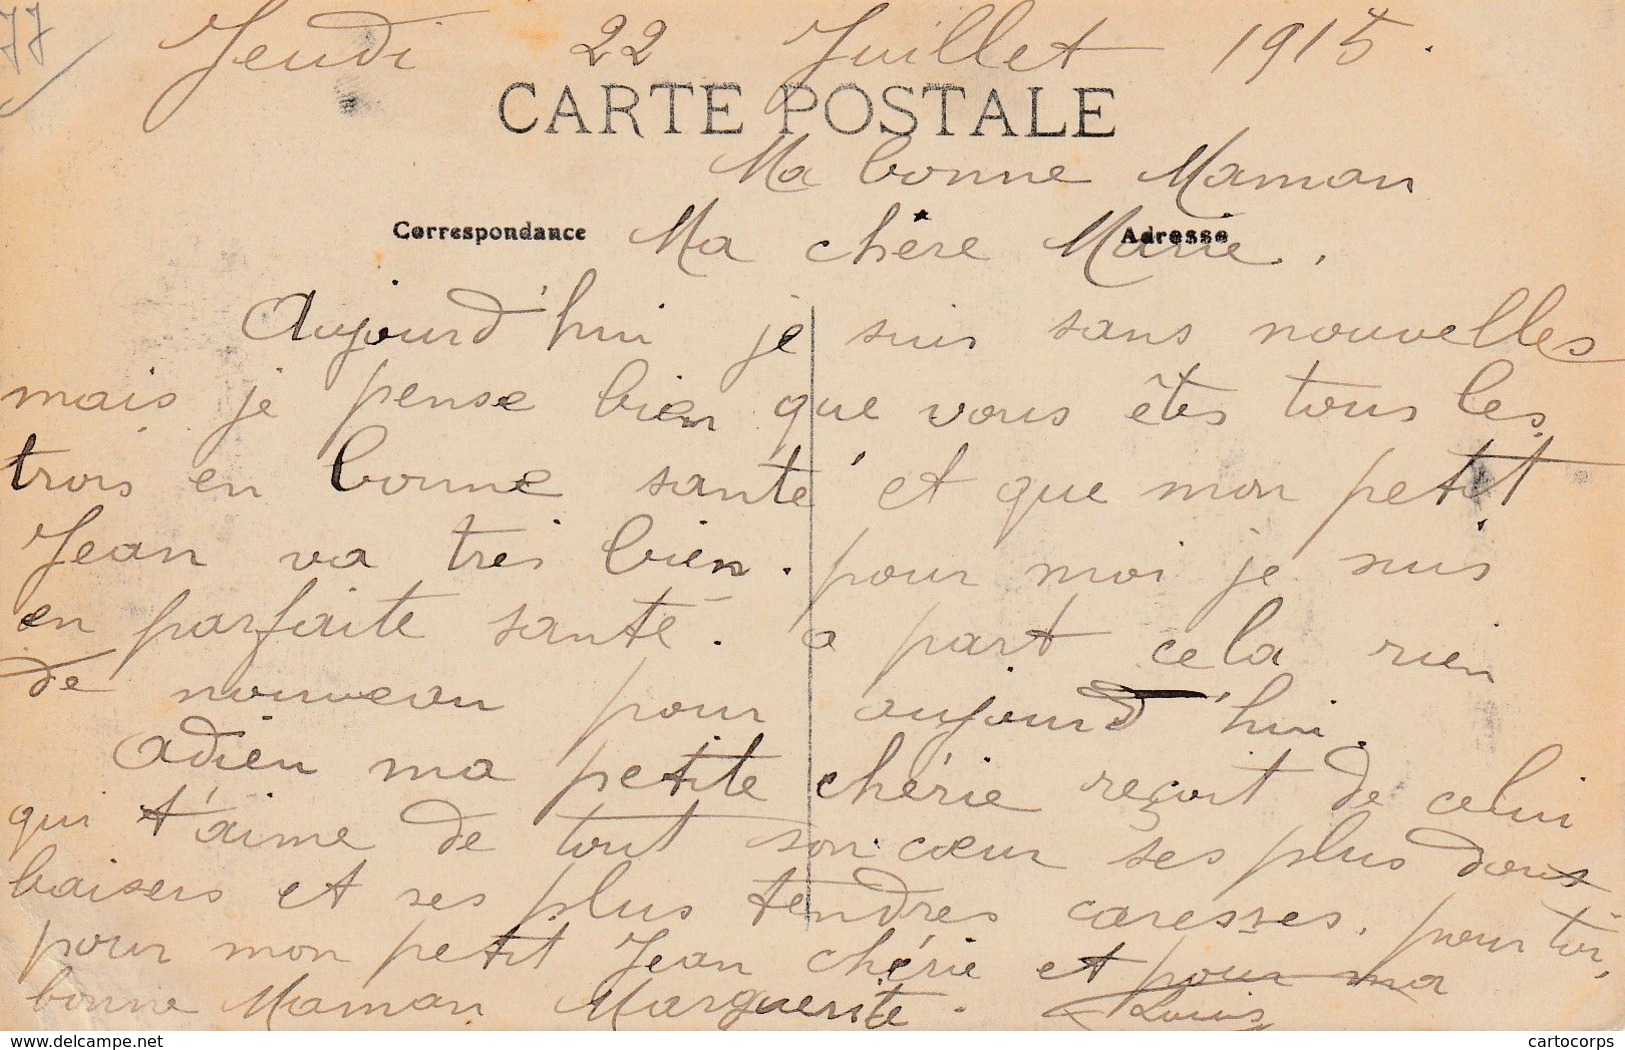 77
Jeudi 22 Juillet 1915.
CARTE POSTALE
Ma bonne Maman
Correspondance
Ma chère Marie.
Adresse
Aujourd'hui je suis sans nouvelles
mais je pense bien que vous êtes tous les
trois en bonne santé et que mon petit
Jean va très bien. pour moi je suis
en parfaite santé. a part cela rien
de nouveau pour aujourd'hui.
Adieu ma petite chérie reçoit de celui
qui t'aime de tout son cœur ses plus doux
baisers et ses plus tendres caresses. pour toi,
pour mon petit Jean chérie et pour ma
bonne Maman Marguerite. Louis
www.delcampe.net
cartocorps